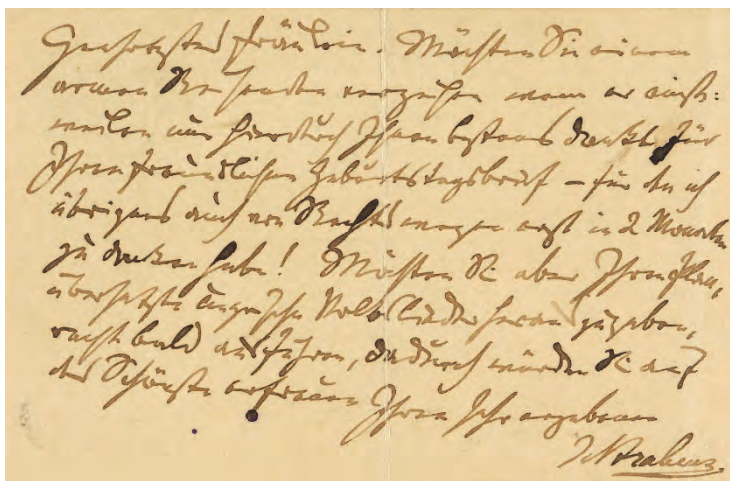 Geehrtestes Fräulein. Möchten Sie einem
armen Reisenden verzeihen wenn er einst-
weilen nur hierdurch Ihnen bestens dankt für
Ihren freundlichen Geburtstagsbrief – für den ich
übrigens auch von Rechts wegen erst in 2 Monaten
zu danken habe! Möchten Sie aber Ihren Plan,
übersetzte Volkslieder herauszugeben,
recht bald ausführen, dadurch würden Sie auf
das Schönste erfreuen Ihren sehr ergebenen
J Brahms.